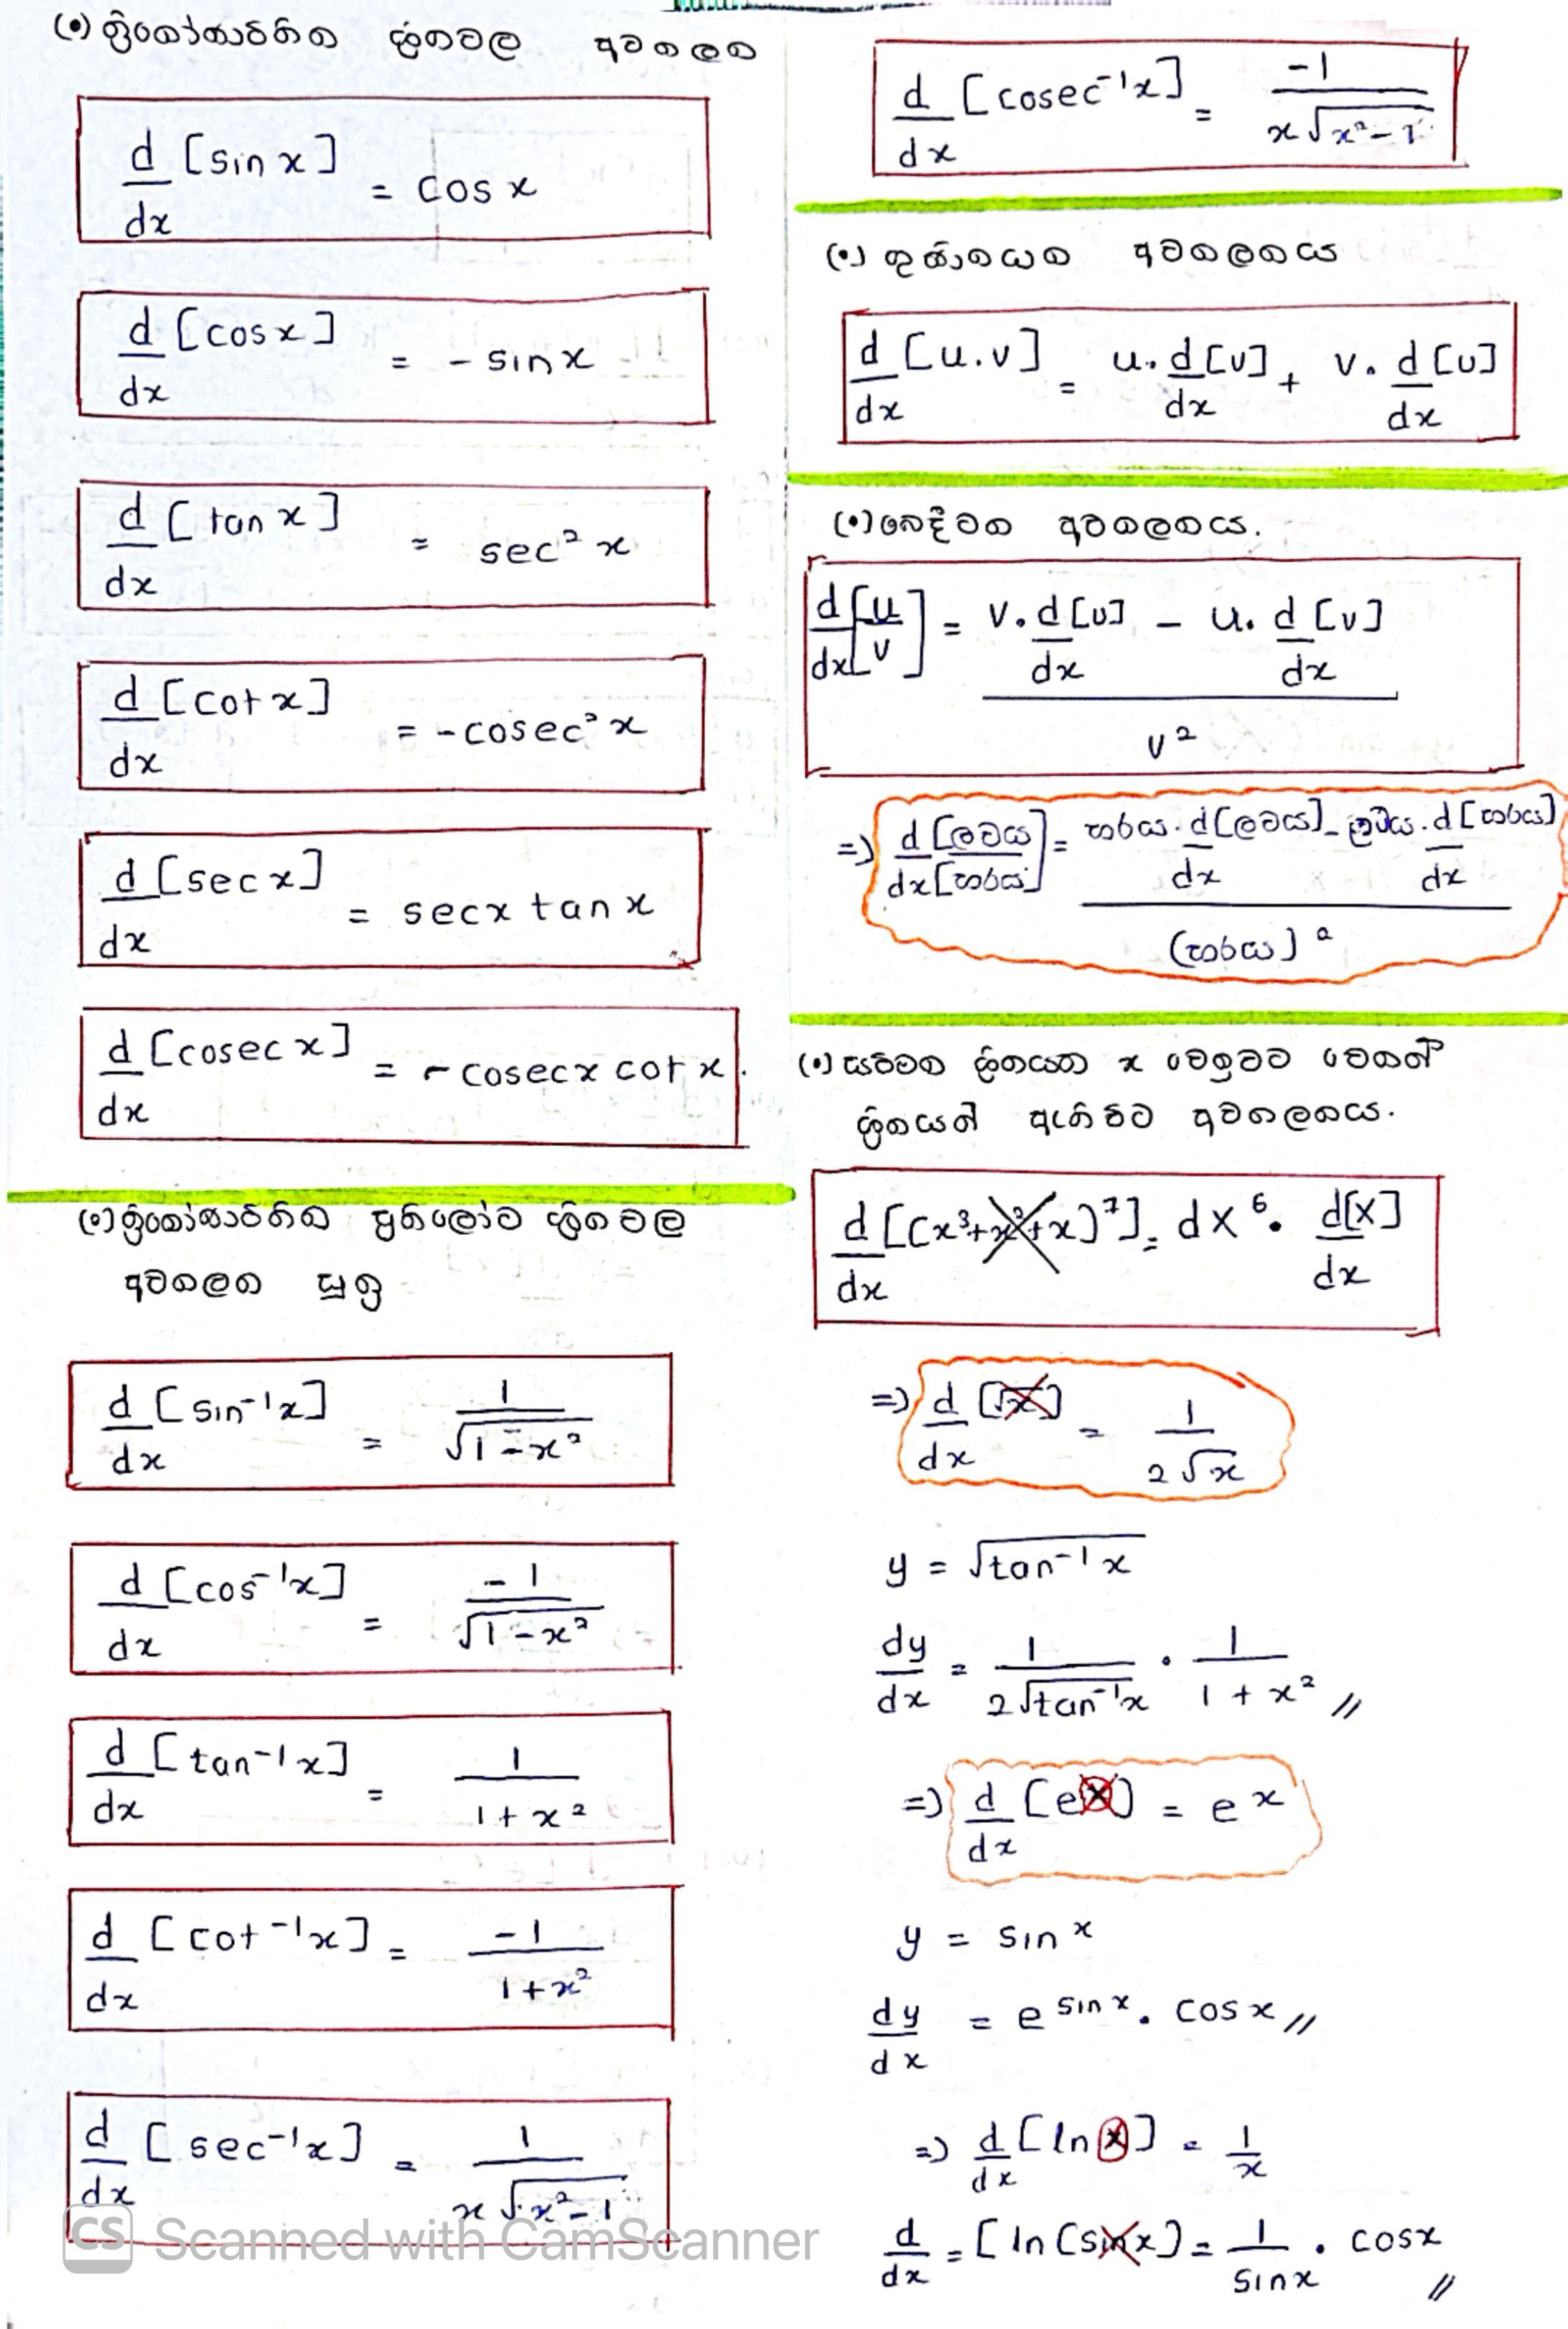 (•) ත්‍රිකෝණමිතික ශ්‍රිතවල අවකලන
d/dx [sin x] = cos x
d/dx [cos x] = - sin x
d/dx [tan x] = sec² x
d/dx [cot x] = - cosec² x
d/dx [sec x] = sec x tan x
d/dx [cosec x] = - cosec x cot x.
(•) ත්‍රිකෝණමිතික ප්‍රතිලෝම ශ්‍රිත වල
අවකලන සූත්‍ර
d/dx [sin⁻¹x] = 1/√(1-x²)
d/dx [cos⁻¹x] = -1/√(1-x²)
d/dx [tan⁻¹x] = 1/(1+x²)
d/dx [cot⁻¹x] = -1/(1+x²)
d/dx [sec⁻¹x] = 1/(x√(x²-1))
CS Scanned with CamScanner
d/dx [cosec⁻¹x] = -1/(x√(x²-1))
(•) ගුණිතයක අවකලනය
d/dx [u.v] = u.d/dx[v] + v.d/dx[u]
(•) බෙදීමක අවකලනය.
d/dx [u/v] = (v.d/dx[u] - u.d/dx[v]) / v²
=) d/dx [ලවය/හරය] = (හරය.d/dx[ලවය] - ලවය.d/dx[හරය]) / (හරය)²
(•) සම්මත ශ්‍රිතයක x වෙනුවට වෙනත්
ශ්‍රිතයක් ඇති විට අවකලනය.
d/dx [(x³+x²+x)⁷] = dx⁶. d[x]/dx
=) d/dx [√x] = 1/(2√x)
y = √(tan⁻¹x)
dy/dx = 1/(2√(tan⁻¹x)) . 1/(1+x²) //
=) d/dx [eˣ] = eˣ
y = sin ˣ
dy/dx = e^(sin x) . cos x //
=) d/dx [ln x] = 1/x
d/dx = [ln (sin x) = 1/sin x . cos x //